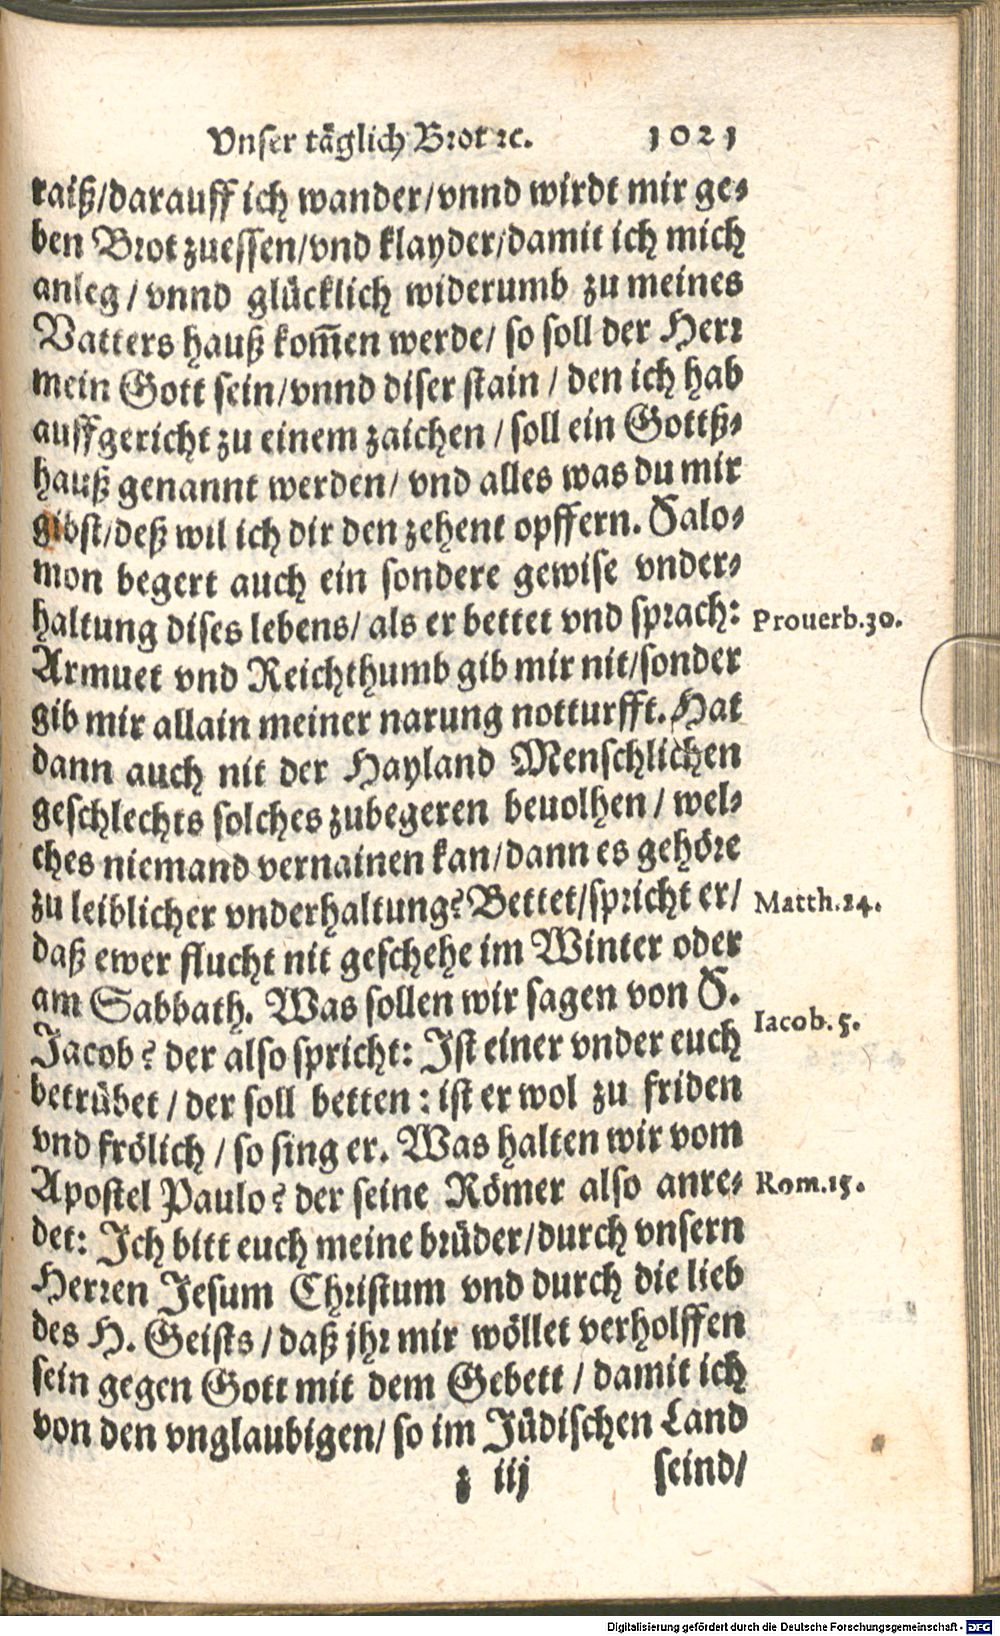 Vnser täglich Brot ꝛc. 1021
raiß/darauff ich wander/vnnd wirdt mir ge-
ben Brot zuessen/vnd klayder/damit ich mich
anleg / vnnd glücklich widerumb zu meines
Vatters hauß kom̄en werde/ so soll der Herr
mein Gott sein/vnnd diser stain / den ich hab
auffgericht zu einem zaichen / soll ein Gottß-
hauß genannt werden/ vnd alles was du mir
gibst/deß wil ich dir den zehent opffern. Salo-
mon begert auch ein sondere gewise vnder-
haltung dises lebens/ als er bettet vnd sprach: Prouerb.30.
Armuet vnd Reichthumb gib mir nit/sonder
gib mir allain meiner narung notturfft. Hat
dann auch nit der Hayland Menschlichen
geschlechts solches zubegeren beuolhen / wel-
ches niemand vernainen kan/dann es gehöre
zu leiblicher vnderhaltung? Bettet/spricht er/ Matth.24.
daß ewer flucht nit geschehe im Winter oder
am Sabbath. Was sollen wir sagen von S.
Jacob? der also spricht: Ist einer vnder euch Iacob.5.
betrübet / der soll betten : ist er wol zu friden
vnd frölich / so sing er. Was halten wir vom
Apostel Paulo? der seine Römer also anre- Rom.15.
det: Ich bitt euch meine brüder/durch vnsern
Herren Jesum Christum vnd durch die lieb
des H. Geists / daß jhr mir wöllet verholffen
sein gegen Gott mit dem Gebett / damit ich
von den vnglaubigen/ so im Jüdischen Land
z iij seind/
Digitalisierung gefördert durch die Deutsche Forschungsgemeinschaft - DFG